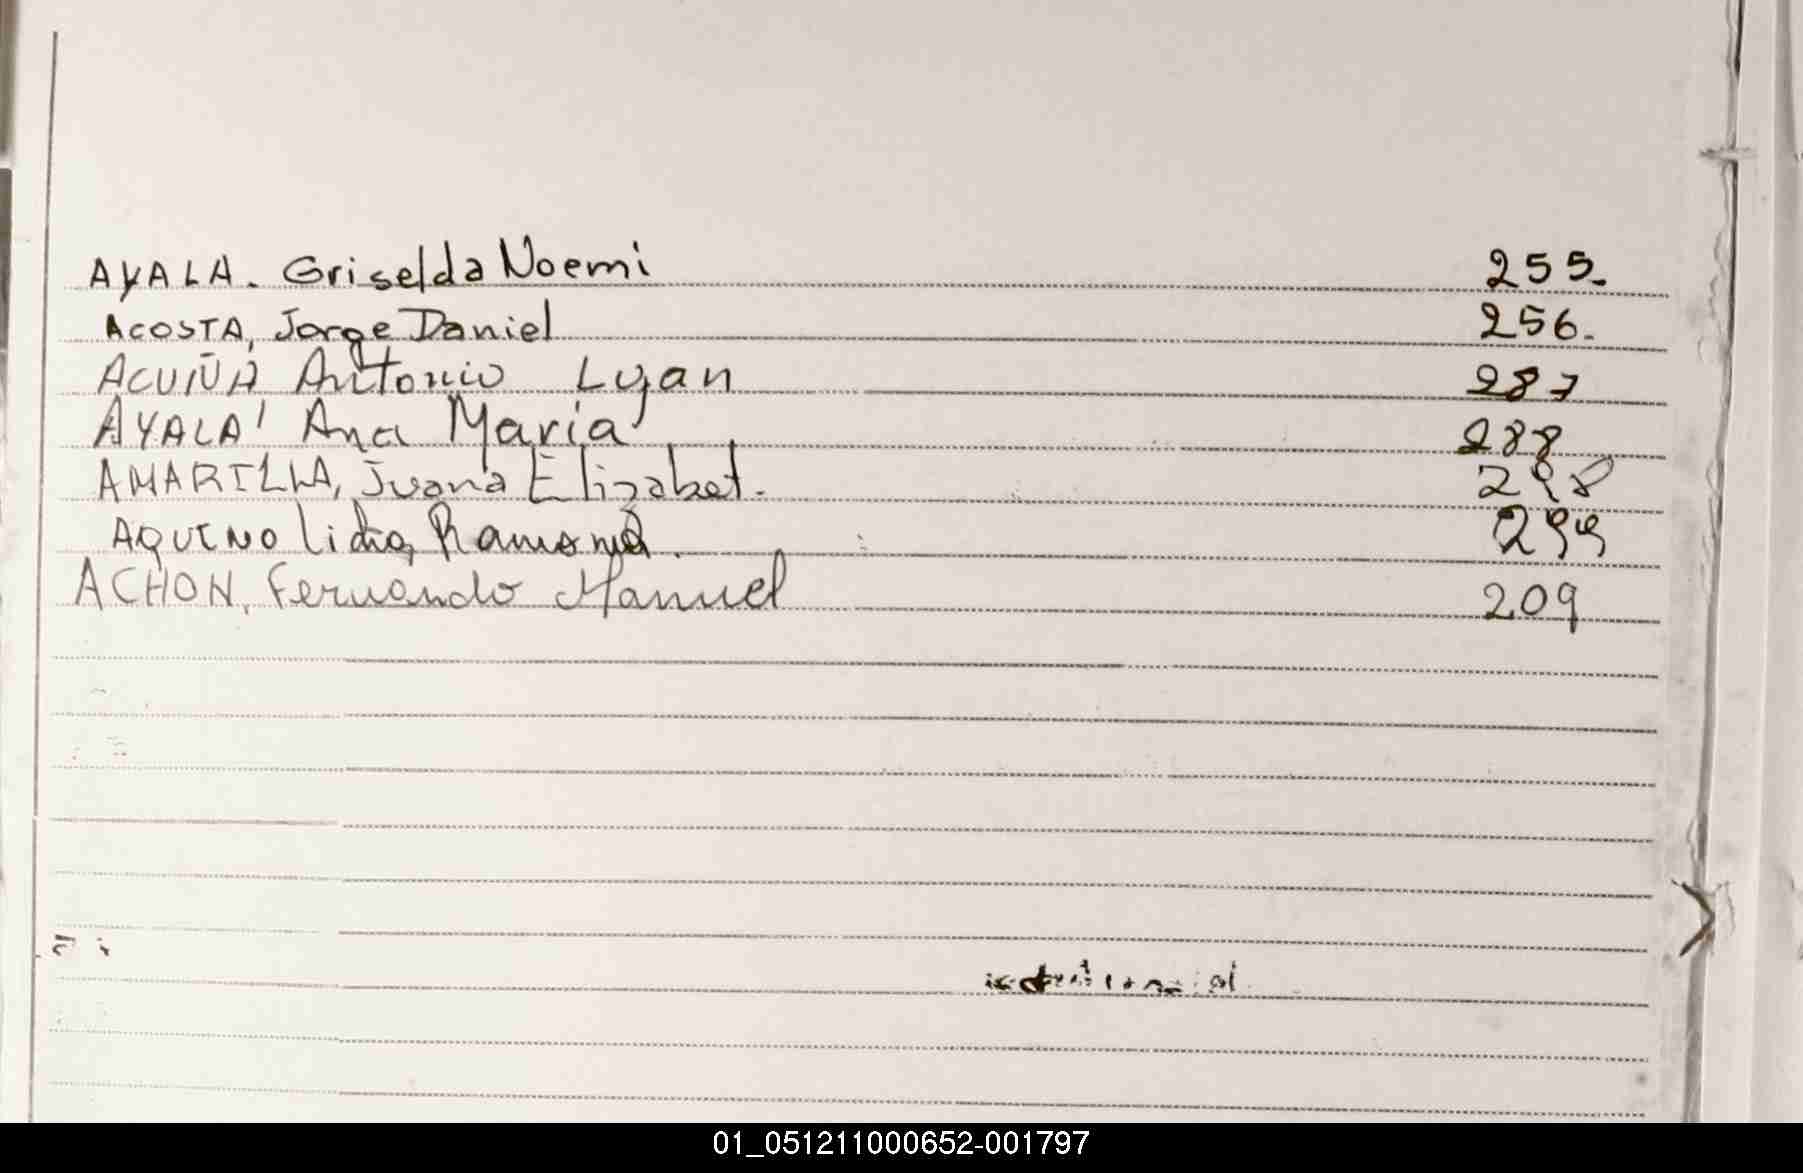 AYALA. Griselda Noemi 255.
ACOSTA, Jorge Daniel 256.
ACUÑA Antonio Lujan 287
AYALA' Ana Maria 288
AMARILLA, Juana Elizabet. 298
AQUINO Lidia, Ramona. 299
ACHON, Fernando Manuel 209
01_051211000652-001797